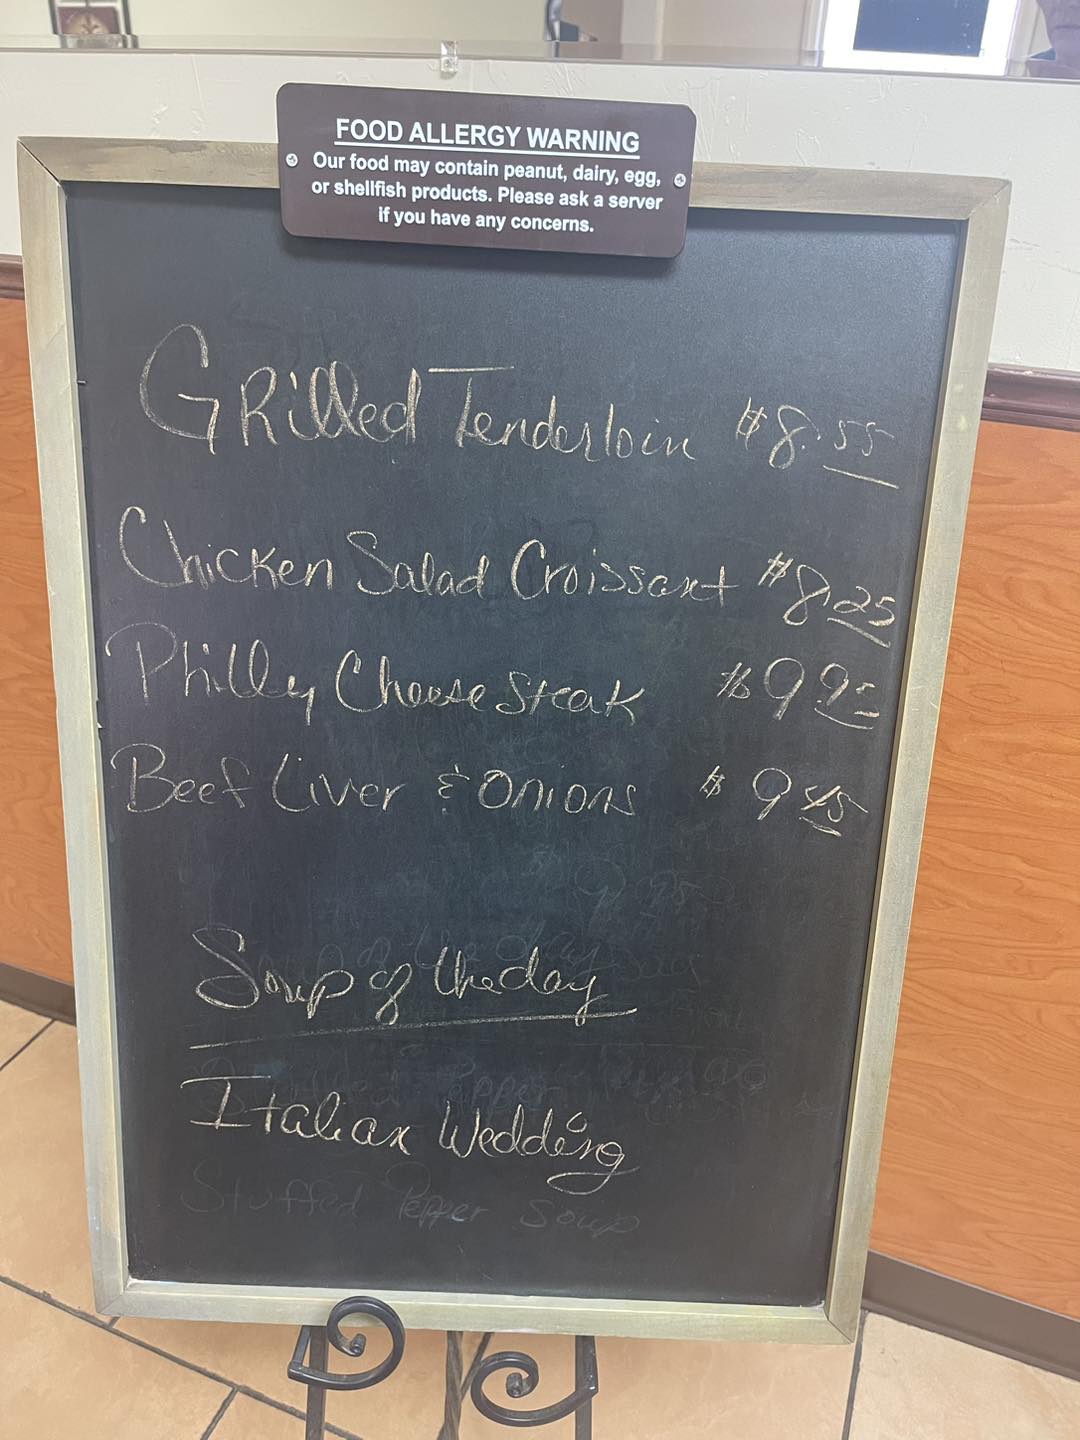 FOOD ALLERGY WARNING
Our food may contain peanut, dairy, egg,
or shellfish products. Please ask a server
if you have any concerns.
GRilled Tenderloin $8.55
Chicken Salad Croissant $8.25
Philly Cheese Steak $9.95
Beef Liver & Onions $9.45
Soup of the day
Italian Wedding
Stuffed Pepper Soup